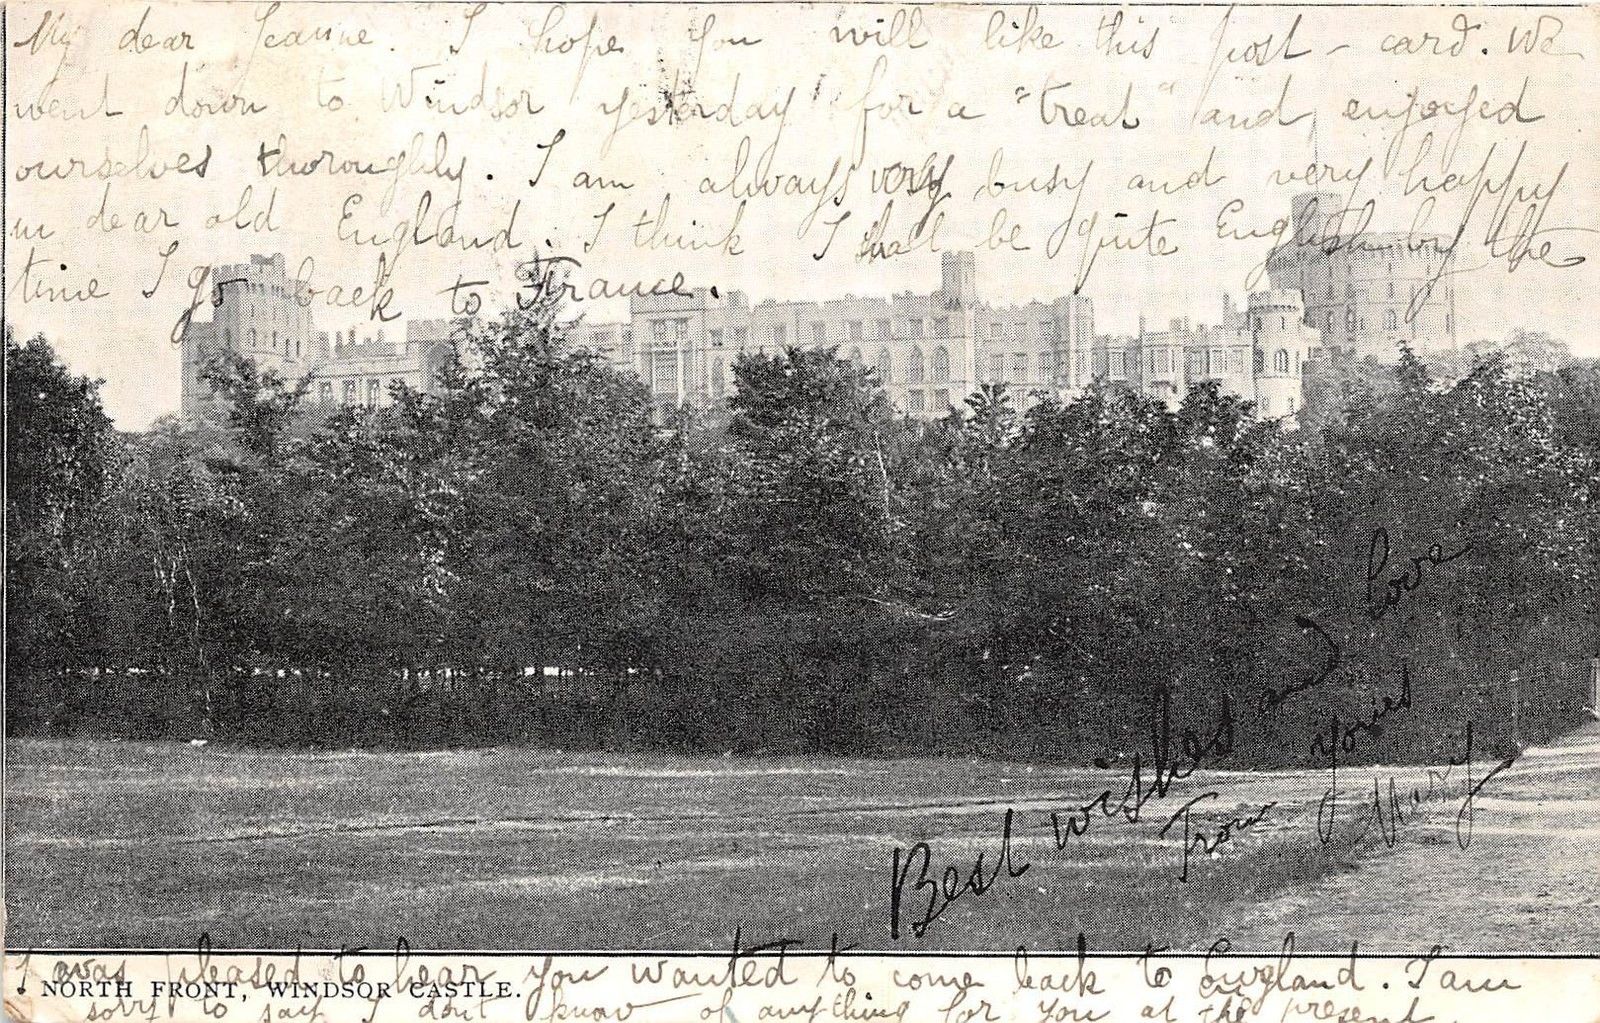 My dear Jeanne. I hope you will like this post-card. We
went down to Windsor yesterday for a "treat" and enjoyed
ourselves thoroughly. I am always very busy and very happy
in dear old England. I think I shall be quite English by the
time I go back to France.
Best wishes and love
From yours
Mary.
I was pleased to hear you wanted to come back to England. I am
NORTH FRONT, WINDSOR CASTLE.
sorry to say I don't know of anything for you at the present.